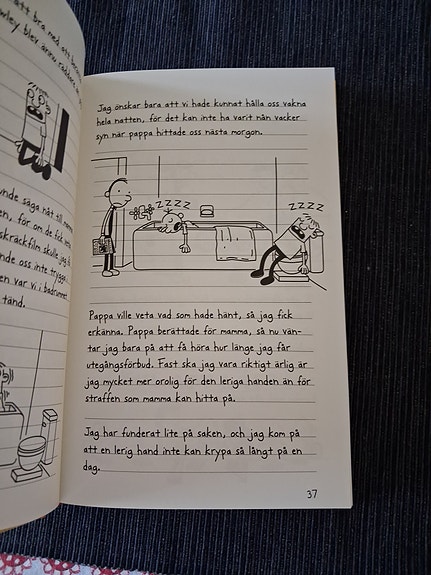 att bra med att
wley blev ännu räddare
nde säga nåt till mamma
en, för om de fick veta
skräckfilm skulle jag
nde oss inte trygga
en var vi i badrummet
tänd.
Jag önskar bara att vi hade kunnat hålla oss vakna
hela natten, för det kan inte ha varit nån vacker
syn när pappa hittade oss nästa morgon.
ZZZZ
ZZZZ
Pappa ville veta vad som hade hänt, så jag fick
erkänna. Pappa berättade för mamma, så nu vän-
tar jag bara på att få höra hur länge jag får
utegångsförbud. Fast ska jag vara riktigt ärlig är
jag mycket mer orolig för den leriga handen än för
straffen som mamma kan hitta på.
Jag har funderat lite på saken, och jag kom på
att en lerig hand inte kan krypa så långt på en
dag.
37